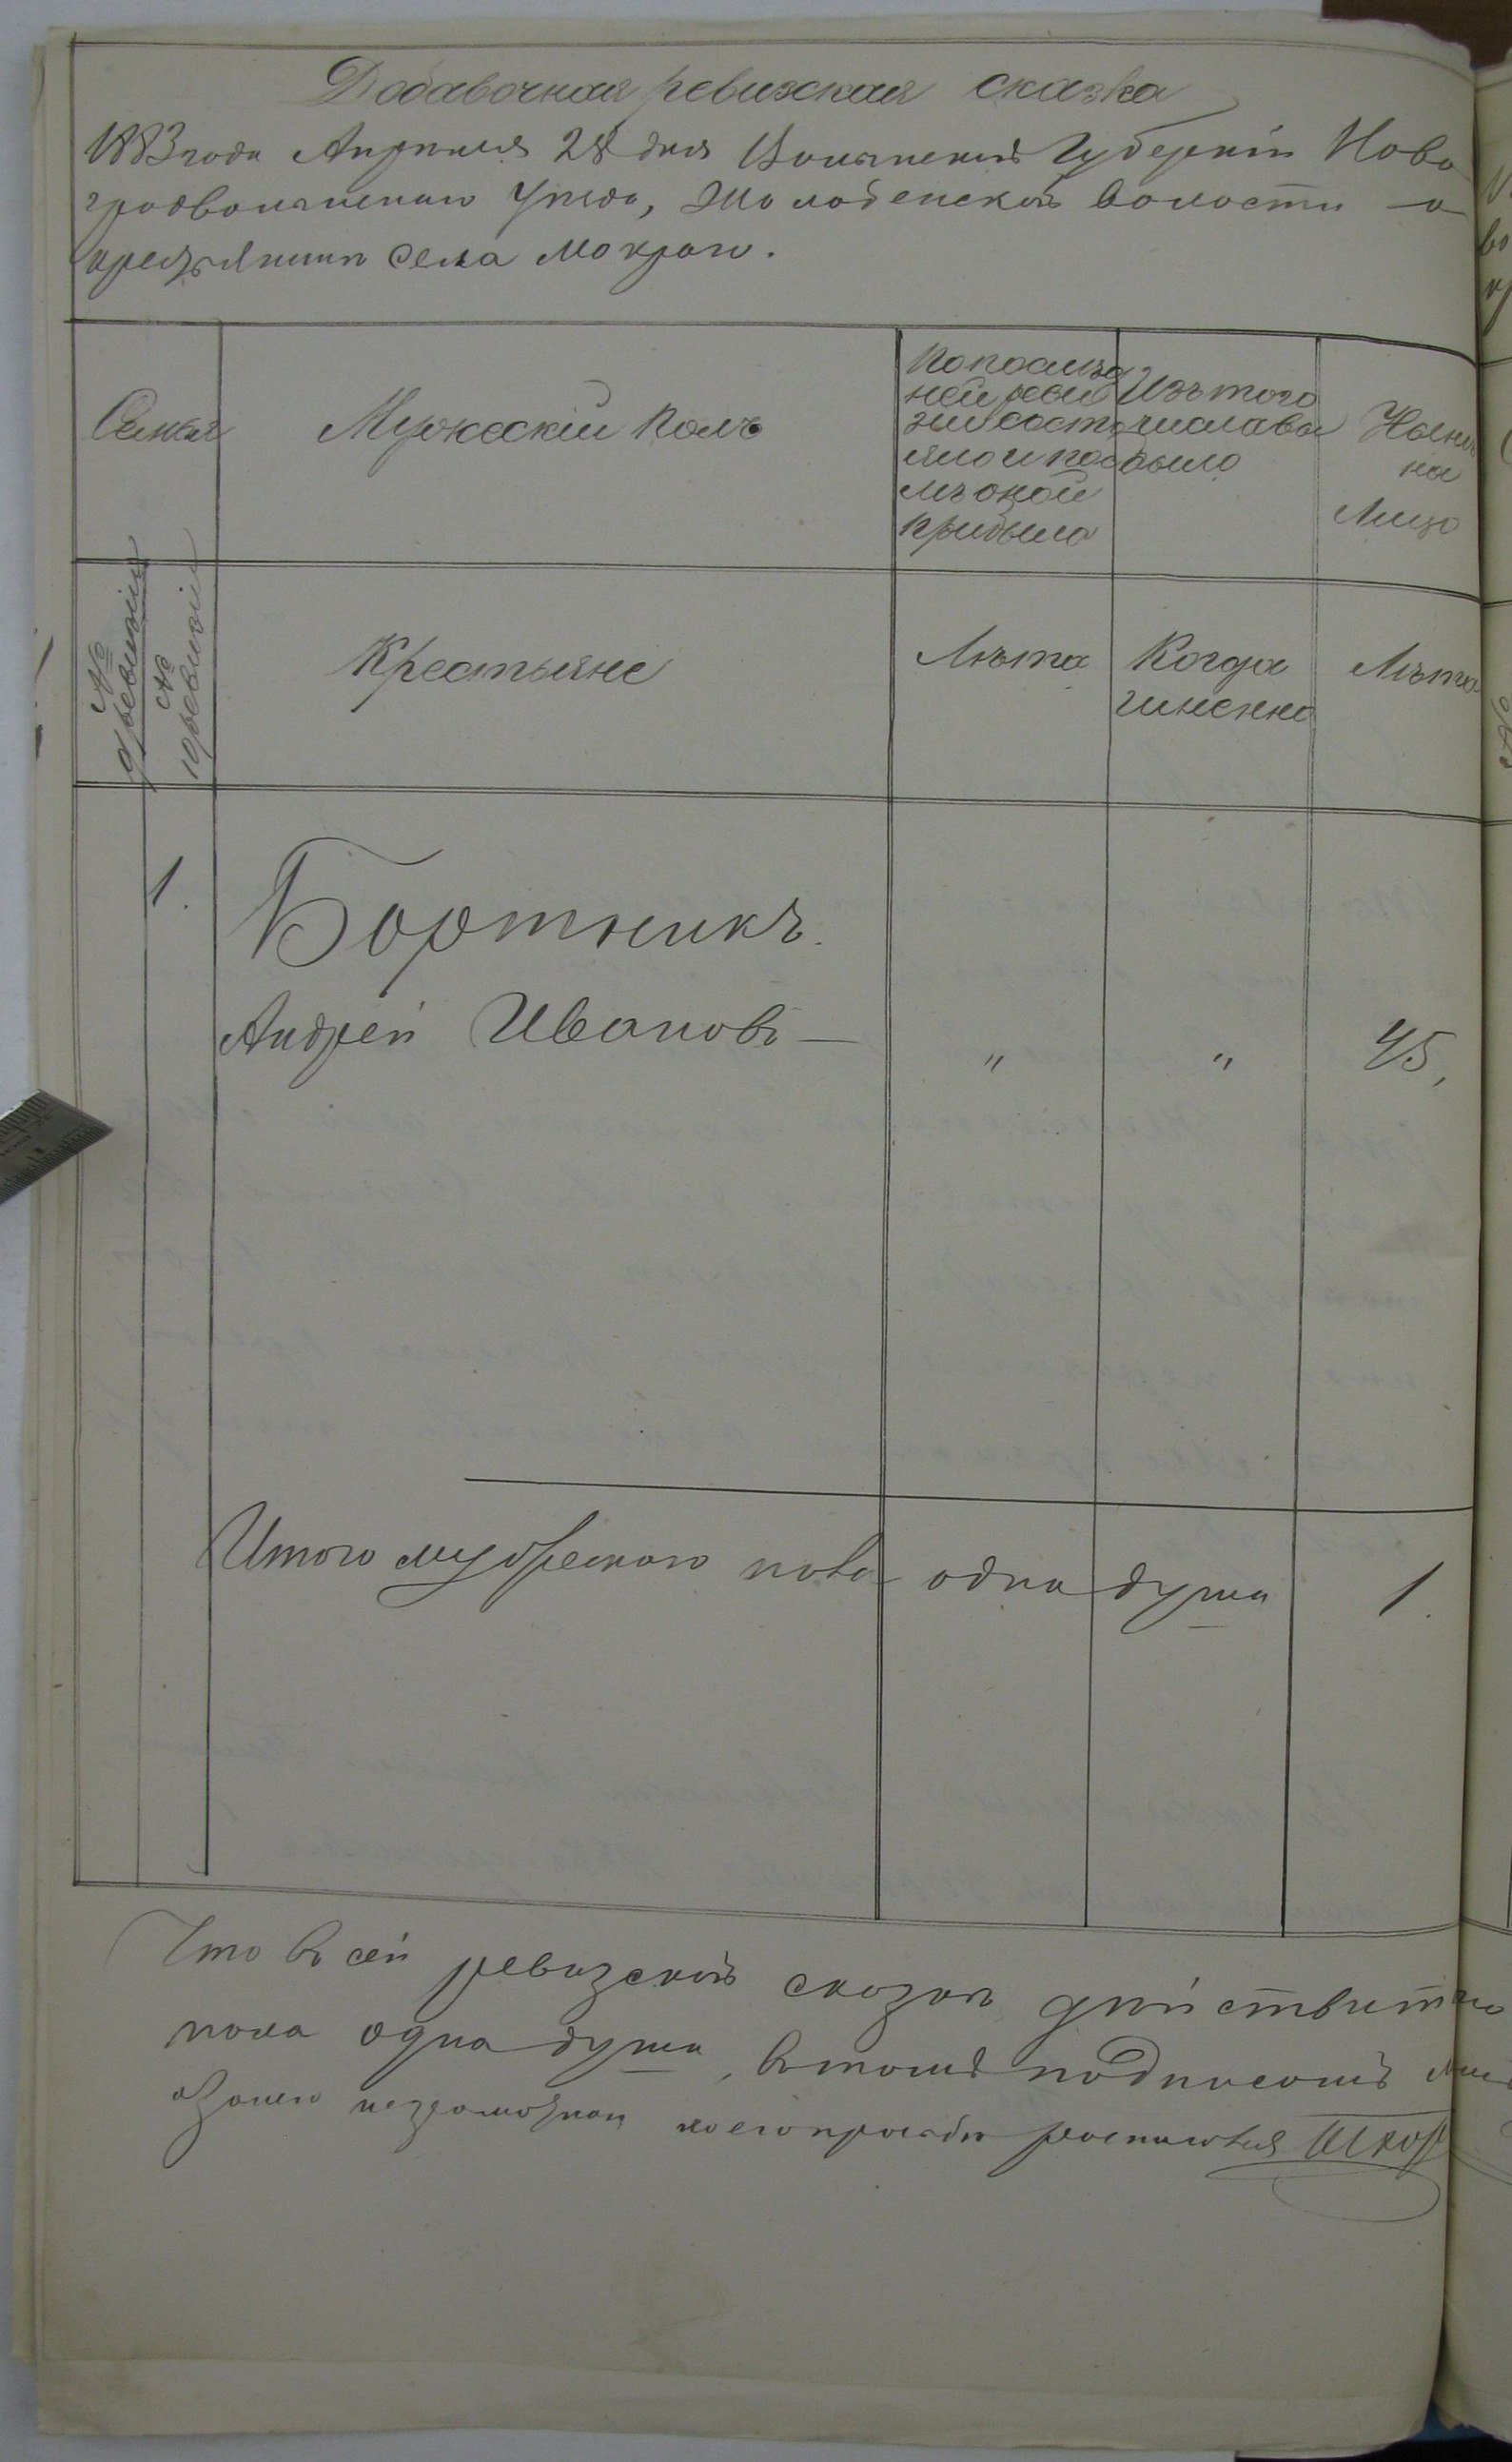 Добавочная ревизская сказка
1883 года Апрѣля 28 дня Волынской Губерніи Ново
градволынскаго Уѣзда, Жолобенской волости о
крестьянинѣ села Мокраго.
Семья
Мужескій Полъ
По послѣд
ней реви
зіи состо
яло и пос
лѣ оной
прибыло
Изъ того
числа вы
было
Нынѣ
на
Лицо
№
9 ревизіи
№
10 ревизіи
Крестьяне
Лѣта
Когда
именно
Лѣта
1.
Бортникъ.
Андрей Ивановъ —
" " 45,
Итого мужескаго пола одна душа 1.
Что въ сей ревизской сказкѣ дѣйствит
пола одна душа, въ томъ подписомъ
по его просьбѣ росписался